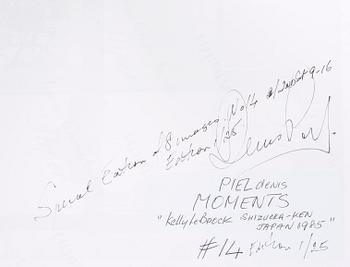 Special Edition of 8 images. No 14 
Edition 1/25
Denis Piel.
PIEL denis
MOMENTS
"Kelly LeBrock SHIZUOKA-KEN
JAPAN 1985"
#14 Edition 1/25